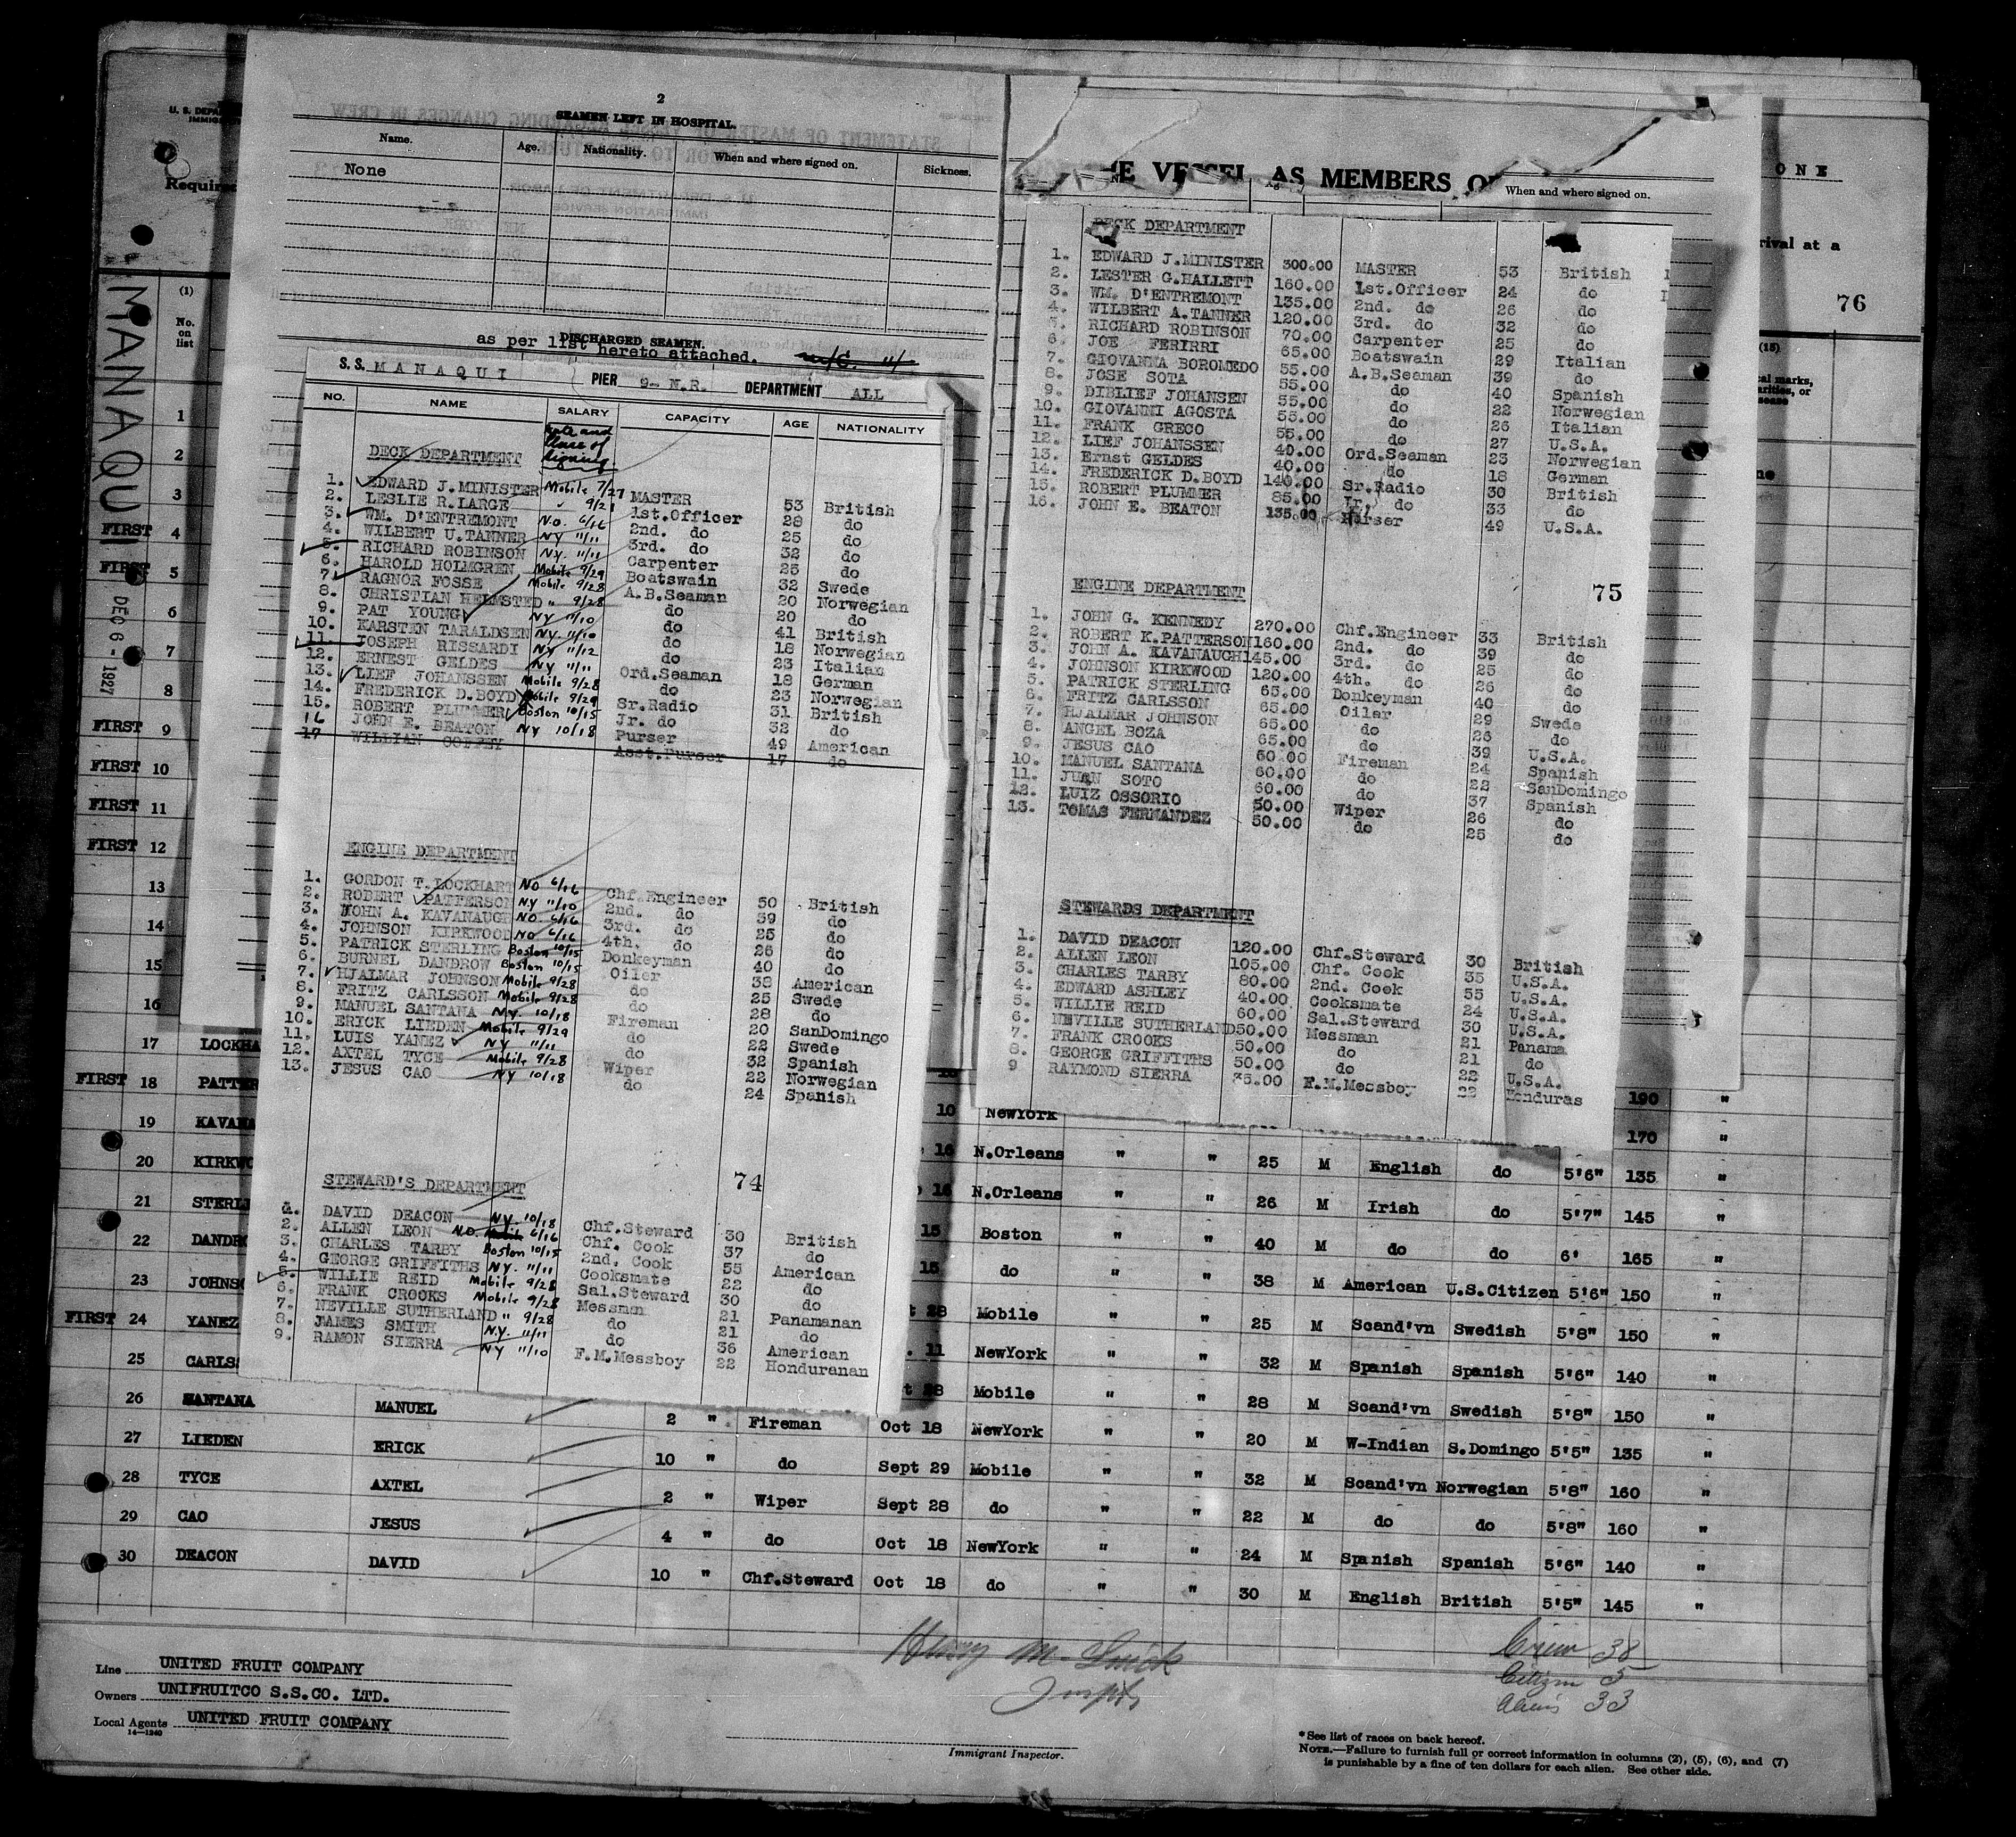 2
SEAMEN LEFT IN HOSPITAL.
Name. Age. Nationality. When and where signed on. Sickness.
None
DISCHARGED SEAMEN.
as per list hereto attached.
S.S. MANAQUI PIER 9- N.R. DEPARTMENT ALL
NO. NAME SALARY CAPACITY AGE NATIONALITY
DECK DEPARTMENT
1. EDWARD J.MINISTER Mobile 7/27 MASTER 53 British
2. LESLIE R.LARGE " 9/28 1st.Officer 28 do
3. WM. D'ENTREMONT N.O. 6/16 2nd. do 25 do
4. WILBERT U.TANNER NY 11/11 3rd. do 32 do
5. RICHARD ROBINSON NY. 11/11 Carpenter 25 do
6. HAROLD HOLMGREN Mobile 9/29 Boatswain 32 Swede
7. RAGNOR FOSSE Mobile 9/28 A.B.Seaman 20 Norwegian
8. CHRISTIAN HELMSTED " 9/28 do 20 do
9. PAT YOUNG NY 11/10 do 41 British
10. KARSTEN TARALDSEN NY. 11/10 do 18 Norwegian
11. JOSEPH RISSARDI NY 11/12 do 23 Italian
12. ERNEST GELDES NY 11/11 Ord.Seaman 18 German
13. LIEF JOHANSSEN Mobile 9/28 do 23 Norwegian
14. FREDERICK D.BOYD Mobile 9/29 Sr.Radio 31 British
15. ROBERT PLUMMER Boston 10/15 Jr. do 32 do
16 JOHN E. BEATON NY 10/18 Purser 49 American
17 WILLIAN Asst.Purser 17 do
ENGINE DEPARTMENT
1. GORDON T.LOCKHART NO 6/16 Chf.Engineer 50 British
2. ROBERT PATTERSON NY 11/10 2nd. do 39 do
3. JOHN A. KAVANAUGH NO 6/16 3rd. do 25 do
4. JOHNSON KIRKWOOD NO 6/16 4th. do 26 do
5. PATRICK STERLING Boston 10/15 Donkeyman 40 do
6. BURNEL DANDROW Boston 10/15 Oiler 38 American
7. HJALMAR JOHNSON Mobile 9/28 do 25 Swede
8. FRITZ CARLSSON Mobile 9/28 do 28 do
9. MANUEL SANTANA NY. 10/18 Fireman 20 SanDomingo
10. ERICK LIEDEN Mobile 9/29 do 22 Swede
11. LUIS YANEZ NY 11/11 do 32 Spanish
12. AXTEL TYCE Mobile 9/28 Wiper 22 Norwegian
13. JESUS CAO NY 10/18 do 24 Spanish
74
STEWARD'S DEPARTMENT
1. DAVID DEACON NY. 10/18 Chf.Steward 30 British
2. ALLEN LEON N.O. 6/16 Chf. Cook 37 do
3. CHARLES TARBY Boston 10/15 2nd. Cook 55 American
4. GEORGE GRIFFITHS NY. 11/11 Cooksmate 22 do
5. WILLIE REID Mobile 9/28 Sal.Steward 30 do
6. FRANK CROOKS Mobile 9/28 Messman 21 Panamanan
7. NEVILLE SUTHERLAND " 9/28 do 21 do
8. JAMES SMITH N.Y. 11/11 do 36 American
9. RAMON SIERRA NY 11/10 F.M.Messboy 22 Honduranan
VESSEL AS MEMBERS
When and where signed on.
DECK DEPARTMENT
1. EDWARD J.MINISTER 300.00 MASTER 53 British
2. LESTER G.HALLETT 160.00 1st.Officer 24 do
3. WM. D'ENTREMONT 135.00 2nd. do 26 do
4. WILBERT A.TANNER 120.00 3rd. do 32 do
5. RICHARD ROBINSON 70.00 Carpenter 25 do
6. JOE FERIRRI 65.00 Boatswain 29 Italian
7. GIOVANNA BOROMEDO 55.00 A.B.Seaman 39 do
8. JOSE SOTA 55.00 do 40 Spanish
9. DIBLIEF JOHANSEN 55.00 do 22 Norwegian
10. GIOVANNI AGOSTA 55.00 do 26 Italian
11. FRANK GRECO 55.00 do 27 U.S.A.
12. LIEF JOHANSSEN 40.00 Ord.Seaman 23 Norwegian
13. Ernst GELDES 40.00 do 18 German
14. FREDERICK D.BOYD 140.00 Sr.Radio 30 British
15. ROBERT PLUMMER 85.00 Jr. do 33 do
16. JOHN E. BEATON 135.00 Purser 49 U.S.A.
75
ENGINE DEPARTMENT
1. JOHN G. KENNEDY 270.00 Chf.Engineer 33 British
2. ROBERT K.PATTERSON 160.00 2nd. do 39 do
3. JOHN A. KAVANAUGH 145.00 3rd. do 25 do
4. JOHNSON KIRKWOOD 120.00 4th. do 26 do
5. PATRICK STERLING 65.00 Donkeyman 40 do
6. FRITZ CARLSSON 65.00 Oiler 29 Swede
7. HJALMAR JOHNSON 65.00 do 26 do
8. ANGEL BOZA 65.00 do 39 U.S.A.
9. JESUS CAO 60.00 Fireman 24 Spanish
10. MANUEL SANTANA 60.00 do 22 SanDomingo
11. JUAN SOTO 60.00 do 37 Spanish
12. LUIZ OSSORIO 50.00 Wiper 26 do
13. TOMAS FERNANDEZ 50.00 do 25 do
STEWARDS DEPARTMENT
1. DAVID DEACON 120.00 Chf.Steward 30 British
2. ALLEN LEON 105.00 Chf. Cook 35 U.S.A.
3. CHARLES TARBY 80.00 2nd. Cook 55 U.S.A.
4. EDWARD ASHLEY 40.00 Cooksmate 24 U.S.A.
5. WILLIE REID 60.00 Sal.Steward 30 U.S.A.
6. NEVILLE SUTHERLAND 50.00 Messman 21 Panama
7. FRANK CROOKS 50.00 do 21 do
8. GEORGE GRIFFITHS 50.00 do 22 U.S.A.
9 RAYMOND SIERRA 35.00 F.M.Messboy 22 Honduras
ONE
rival at a
76
(15)
MANAQUI
DEC 6 - 1927
(1)
No. on list
1
2
3
FIRST 4
FIRST 5
6
7
8
FIRST 9
FIRST 10
FIRST 11
FIRST 12
13
14
15
16
17 LOCKHA 190 "
FIRST 18 PATTER 10 NewYork 170 "
19 KAVANA 16 N.Orleans " " 25 M English do 5'6" 135 "
20 KIRKWO 16 N.Orleans " " 26 M Irish do 5'7" 145 "
21 STERLI 15 Boston " " 40 M do do 6' 165 "
22 DANDRO 15 do " " 38 M American U.S.Citizen 5'6" 150 "
23 JOHNSO 28 Mobile " " 25 M Scand'vn Swedish 5'8" 150 "
FIRST 24 YANEZ 11 NewYork " " 32 M Spanish Spanish 5'6" 140 "
25 CARLS 28 Mobile " " 28 M Scand'vn Swedish 5'8" 150 "
26 SANTANA MANUEL 2 " Fireman Oct 18 NewYork " " 20 M W-Indian S.Domingo 5'5" 135 "
27 LIEDEN ERICK 10 " do Sept 29 Mobile " " 32 M Scand'vn Norwegian 5'8" 160 "
28 TYCE AXTEL 2 " Wiper Sept 28 do " " 22 M do do 5'8" 160 "
29 CAO JESUS 4 " do Oct 18 NewYork " " 24 M Spanish Spanish 5'6" 140 "
30 DEACON DAVID 10 " Chf.Steward Oct 18 do " " 30 M English British 5'5" 145 "
Crew 38
Citizen 5
Aliens 33
Line UNITED FRUIT COMPANY
Owners UNIFRUITCO S.S.CO. LTD.
Local Agents UNITED FRUIT COMPANY
14—1240
Immigrant Inspector.
*See list of races on back hereof.
NOTE.—Failure to furnish full or correct information in columns (2), (5), (6), and (7)
is punishable by a fine of ten dollars for each alien. See other side.